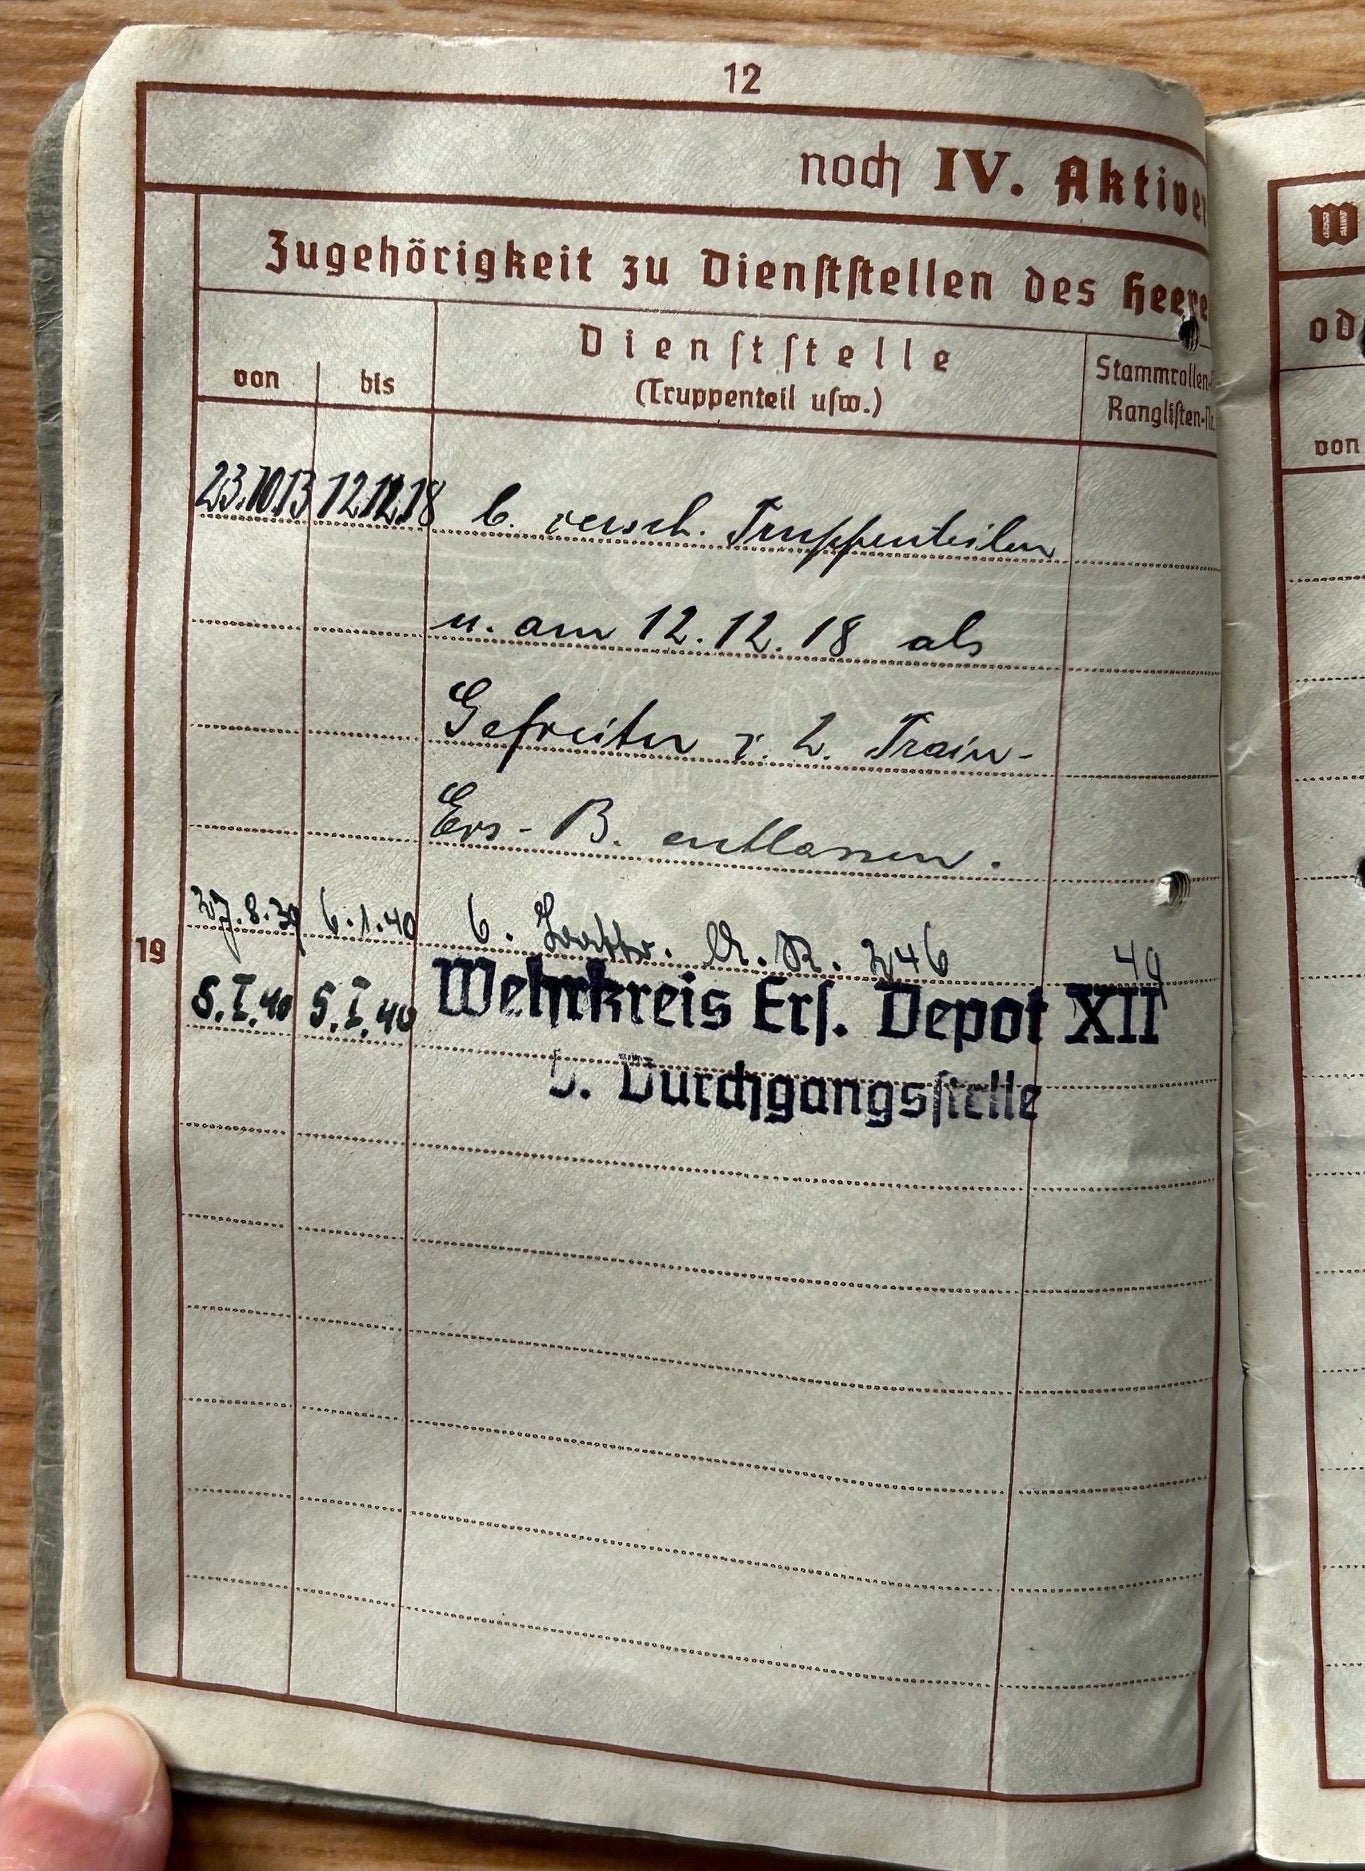 12
noch IV. Aktiver
Zugehörigkeit zu Dienststellen des Heere
von bis Dienststelle
(Truppenteil usw.)
Stammrollen-
Ranglisten-Nr.
23.10.13 12.12.18 b. versch. Truppenteilen
u. am 12.12.18 als
Gefreiter v. 2. Train-
Ers-B. entlassen.
27.8.39 6.1.40 6. Battr. A. R. 246 49
19
5.I.40 5.I.40 Wehrkreis Ers. Depot XII
Durchgangsstelle
W
od
von